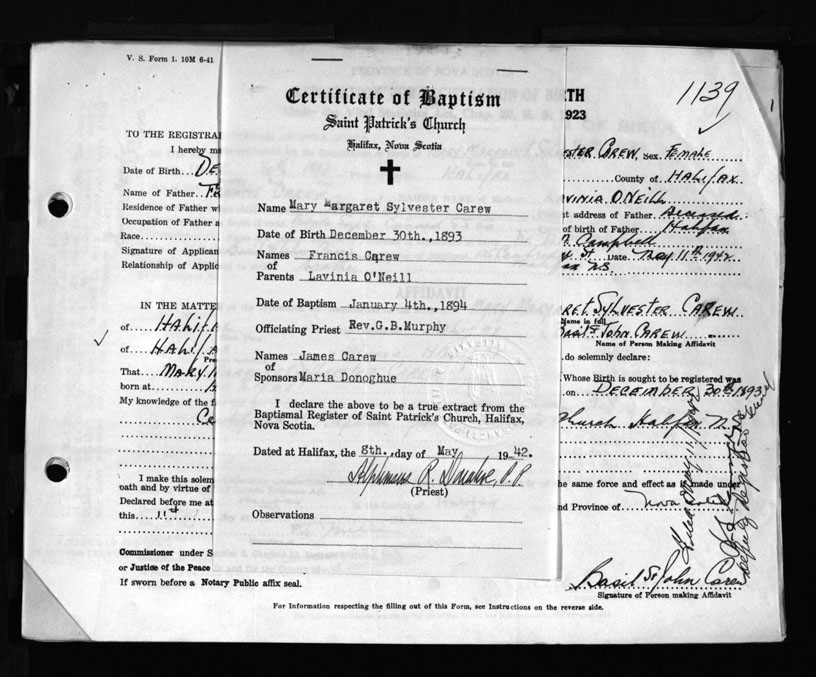 V. S. Form 1. 10M 6-41
TO THE REGISTRAR
I hereby ma
Date of Birth De
Name of Father
Residence of Father w
Occupation of Father a
Race
Signature of Applican
Relationship of Applic
IN THE MATTE
of Halif
of Halifa
That Mary M
born at
My knowledge of the f
Ce
I make this solem
oath and by virtue of
Declared before me at
this 11th
Commissioner under S
or Justice of the Peace
If sworn before a Notary Public affix seal.
Certificate of Baptism
Saint Patrick's Church
Halifax, Nova Scotia
Name Mary Margaret Sylvester Carew
Date of Birth December 30th.,1893
Names Francis Carew
of
Parents Lavinia O'Neill
Date of Baptism January 4th., 1894
Officiating Priest Rev.G.B.Murphy
Names James Carew
of
Sponsors Maria Donoghue
I declare the above to be a true extract from the
Baptismal Register of Saint Patrick's Church, Halifax,
Nova Scotia.
Dated at Halifax, the 8th. day of May 1942.
R. P.P.
(Priest)
Observations
RTH
1923
1139
ESTER CAREW, Sex Female
County of Halifax
vinia O'Neill
t address of Father Deceased
of birth of Father Halifax
Campbell
St Date May 11th 1942
N.S.
RET SYLVESTER CAREW
Name in full
Basil St John CAREW
Name of Person Making Affidavit
do solemnly declare:
Whose Birth is sought to be registered was
on December 30th 1893
Church Halifax N
he same force and effect as if made under
nd Province of Nova Scotia
Filed May 11/1942
Deputy Registrar General
Basil St John Carew
Signature of Person making Affidavit
For Information respecting the filling out of this Form, see Instructions on the reverse side.